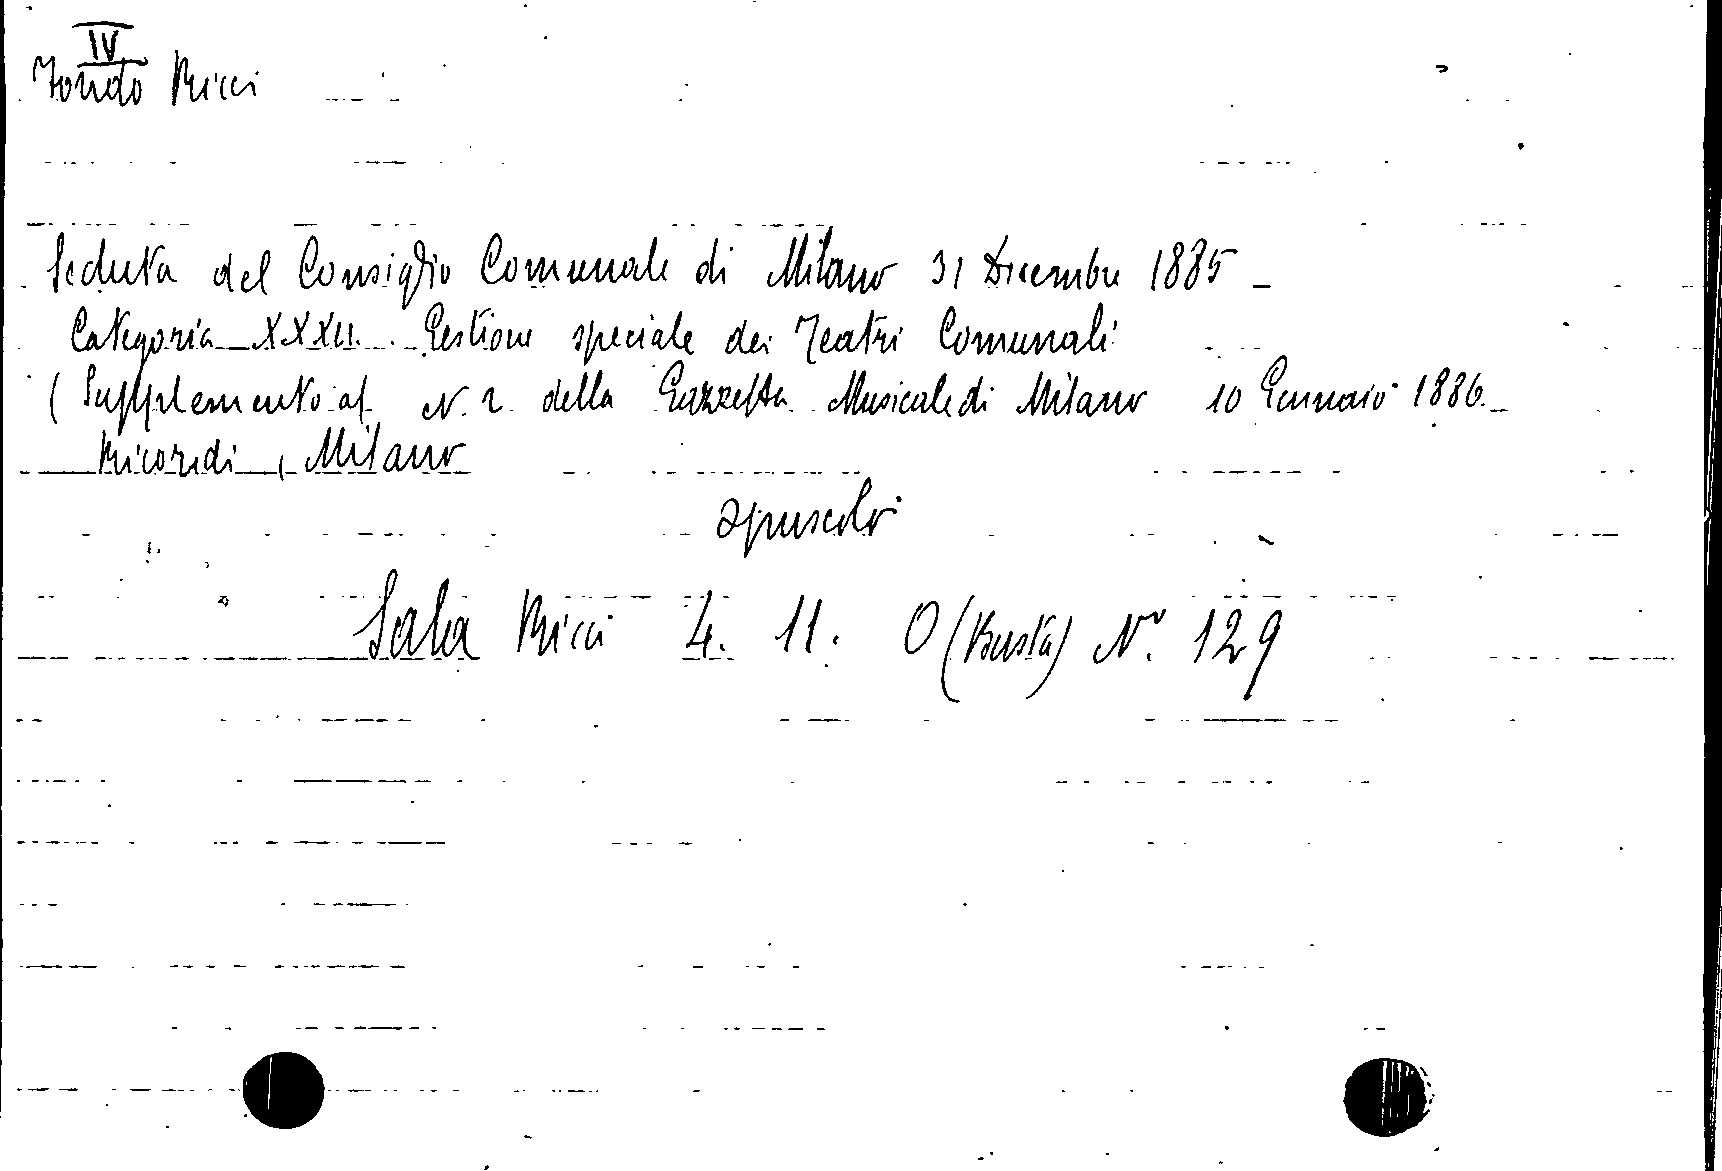 IV
Fondo Ricci
Seduta del Consiglio Comunale di Milano 31 Dicembre 1885 -
Categoria XXXII. Gestione speciale dei Teatri Comunali
(Supplemento al N. 2 della Gazzetta Musicale di Milano 10 Gennaio 1886 -
Ricordi, Milano
opuscolo
Sala Ricci 4. 11. O (Busta) N° 129